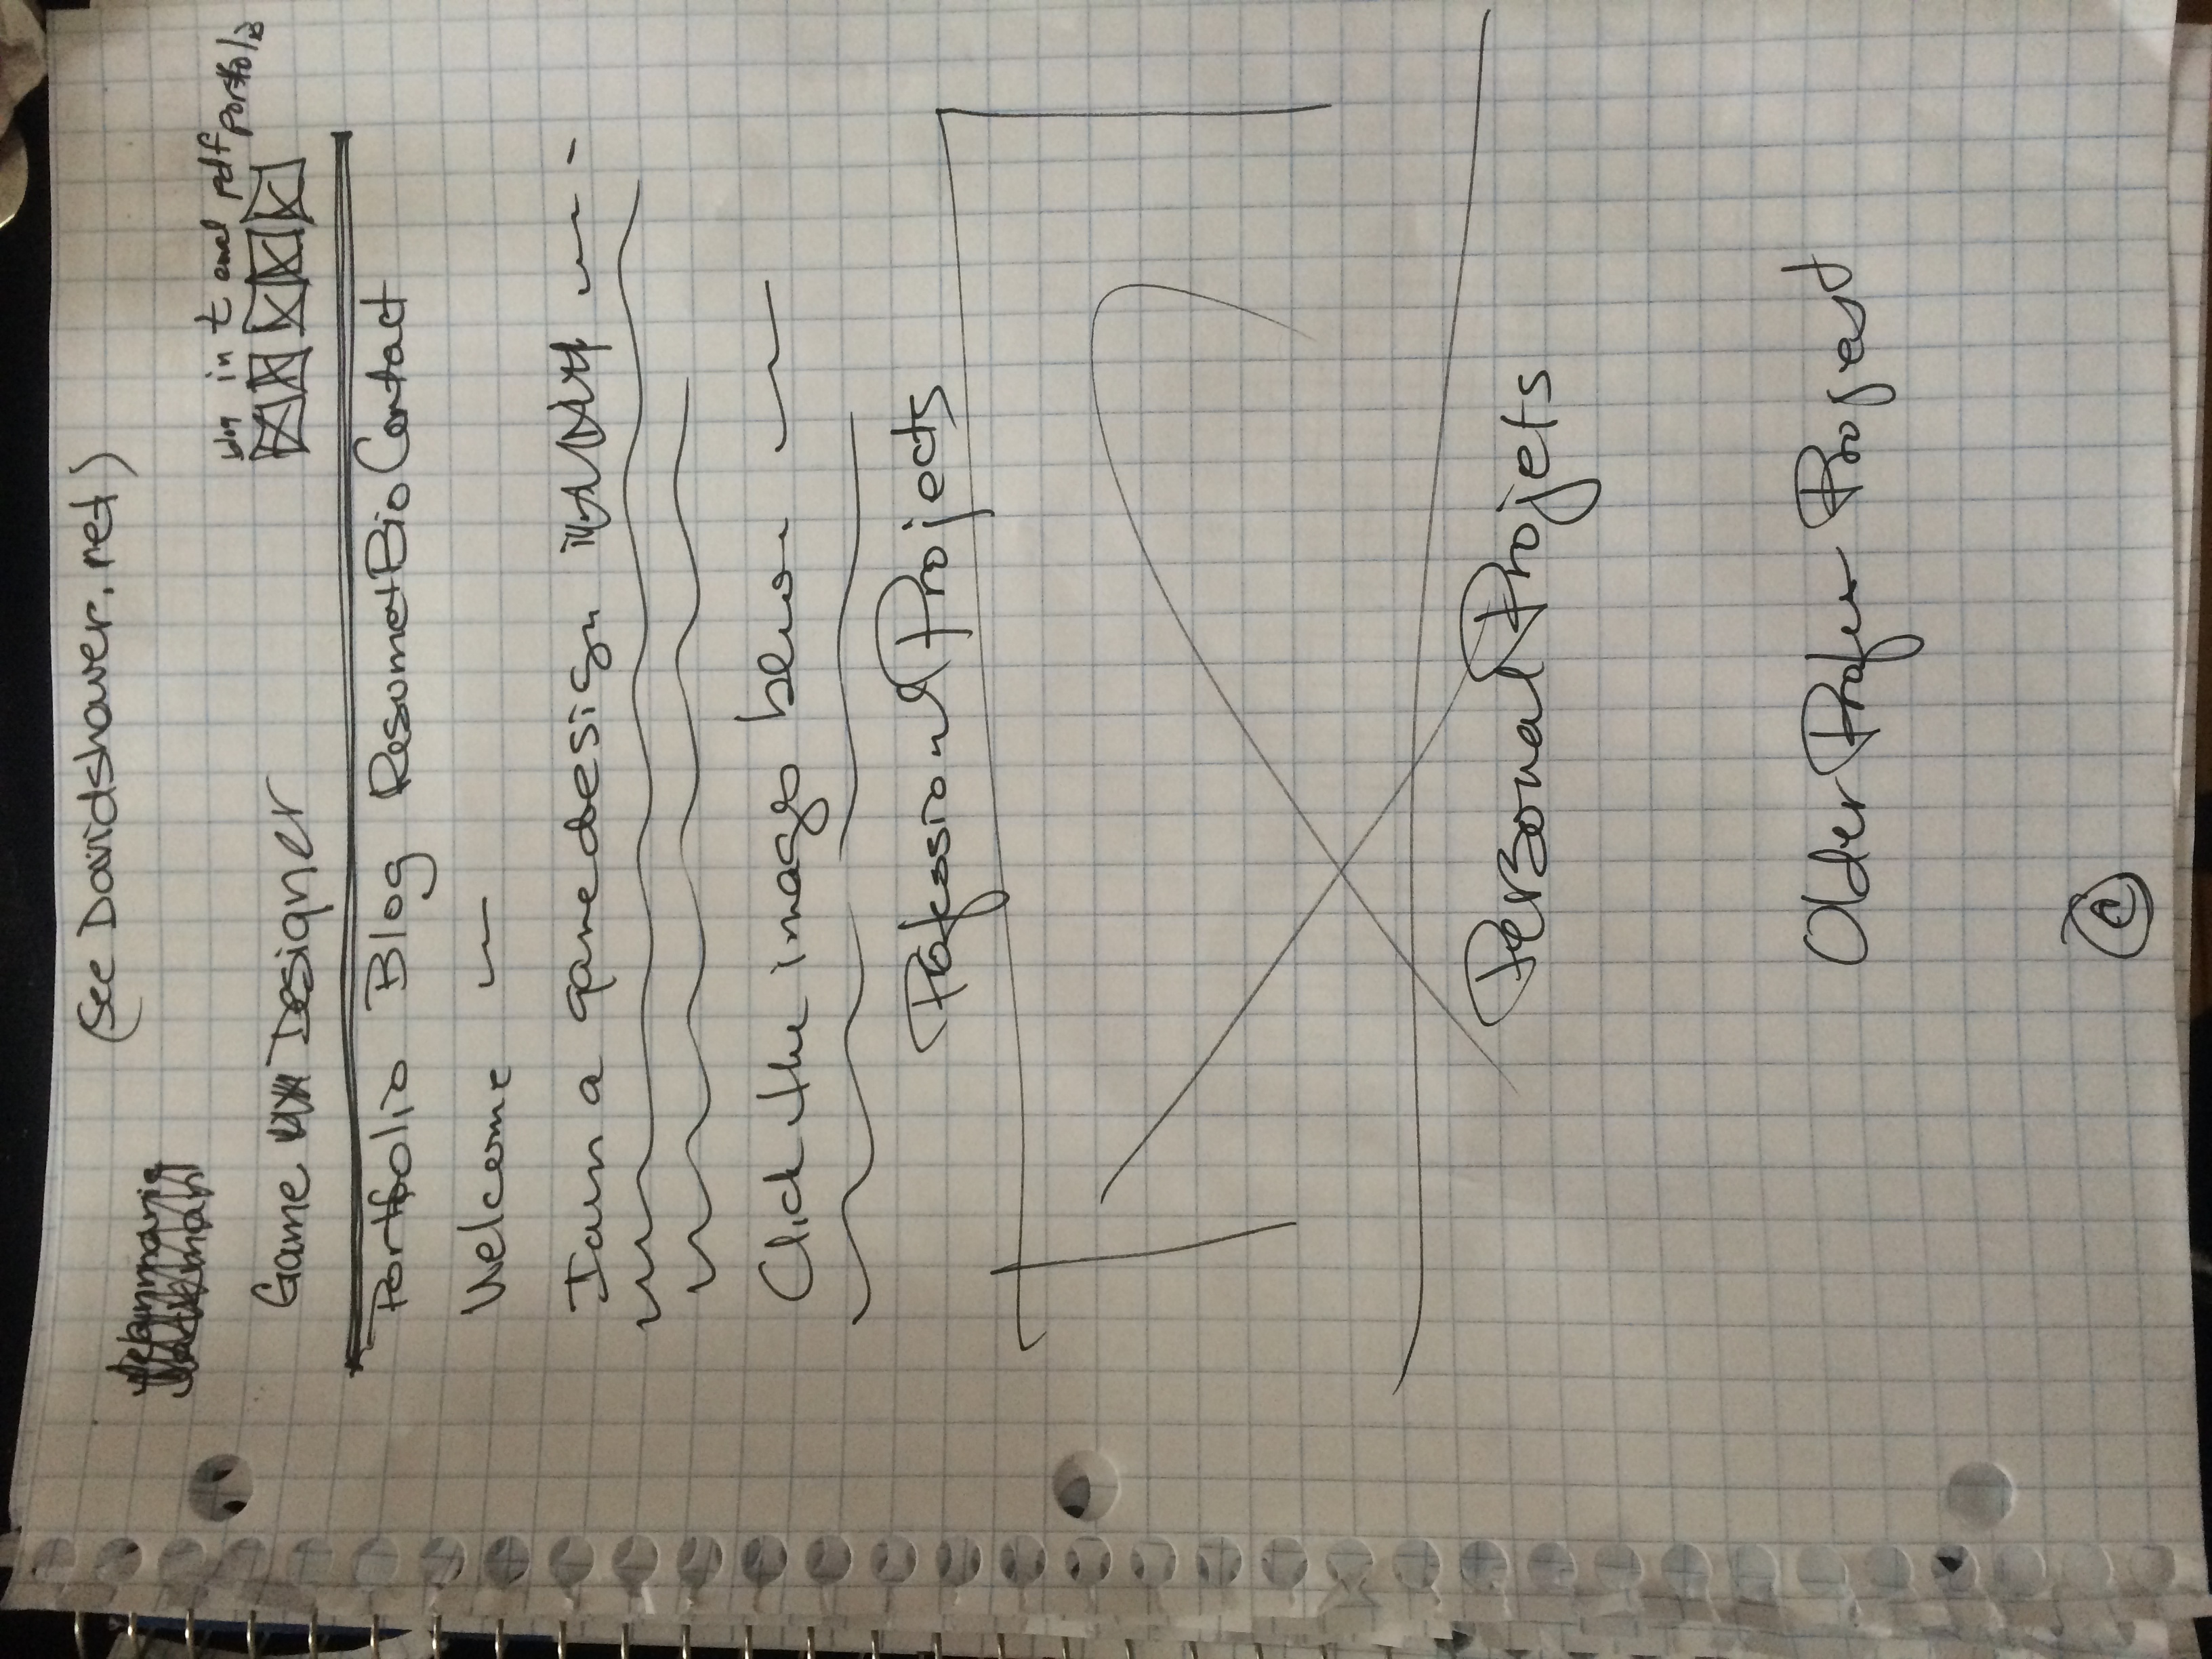 (see Davidshaver.net)
blog in t email pdf portfolio
Game Designer
Portfolio Blog Resume+Bio Contact
Welcome
I am a game design
Click the images below
Professional Projects
Personal Projets
Older Profesn Project
©